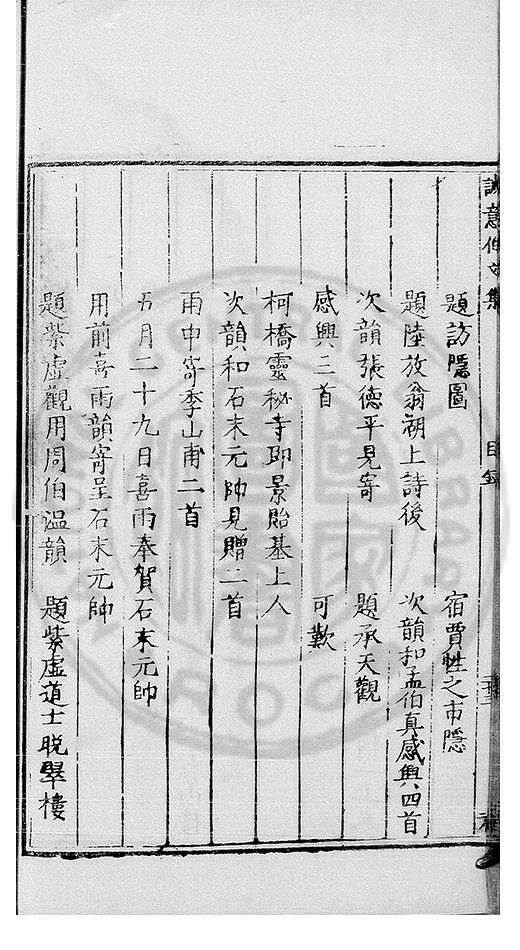 誠意伯文集 目錄
題訪隱圖 宿賈性之市隱
題陸放翁湖上詩後 次韻和孟伯真感興四首
次韻張德平見寄 題承天觀
感興三首 可歎
柯橋靈秘寺即景貽基上人
次韻和石末元帥見贈二首
雨中寄季山甫二首
五月二十九日喜雨奉賀石末元帥
用前喜雨韻寄呈石末元帥
題紫虛觀用周伯溫韻 題紫虛道士晚翠樓